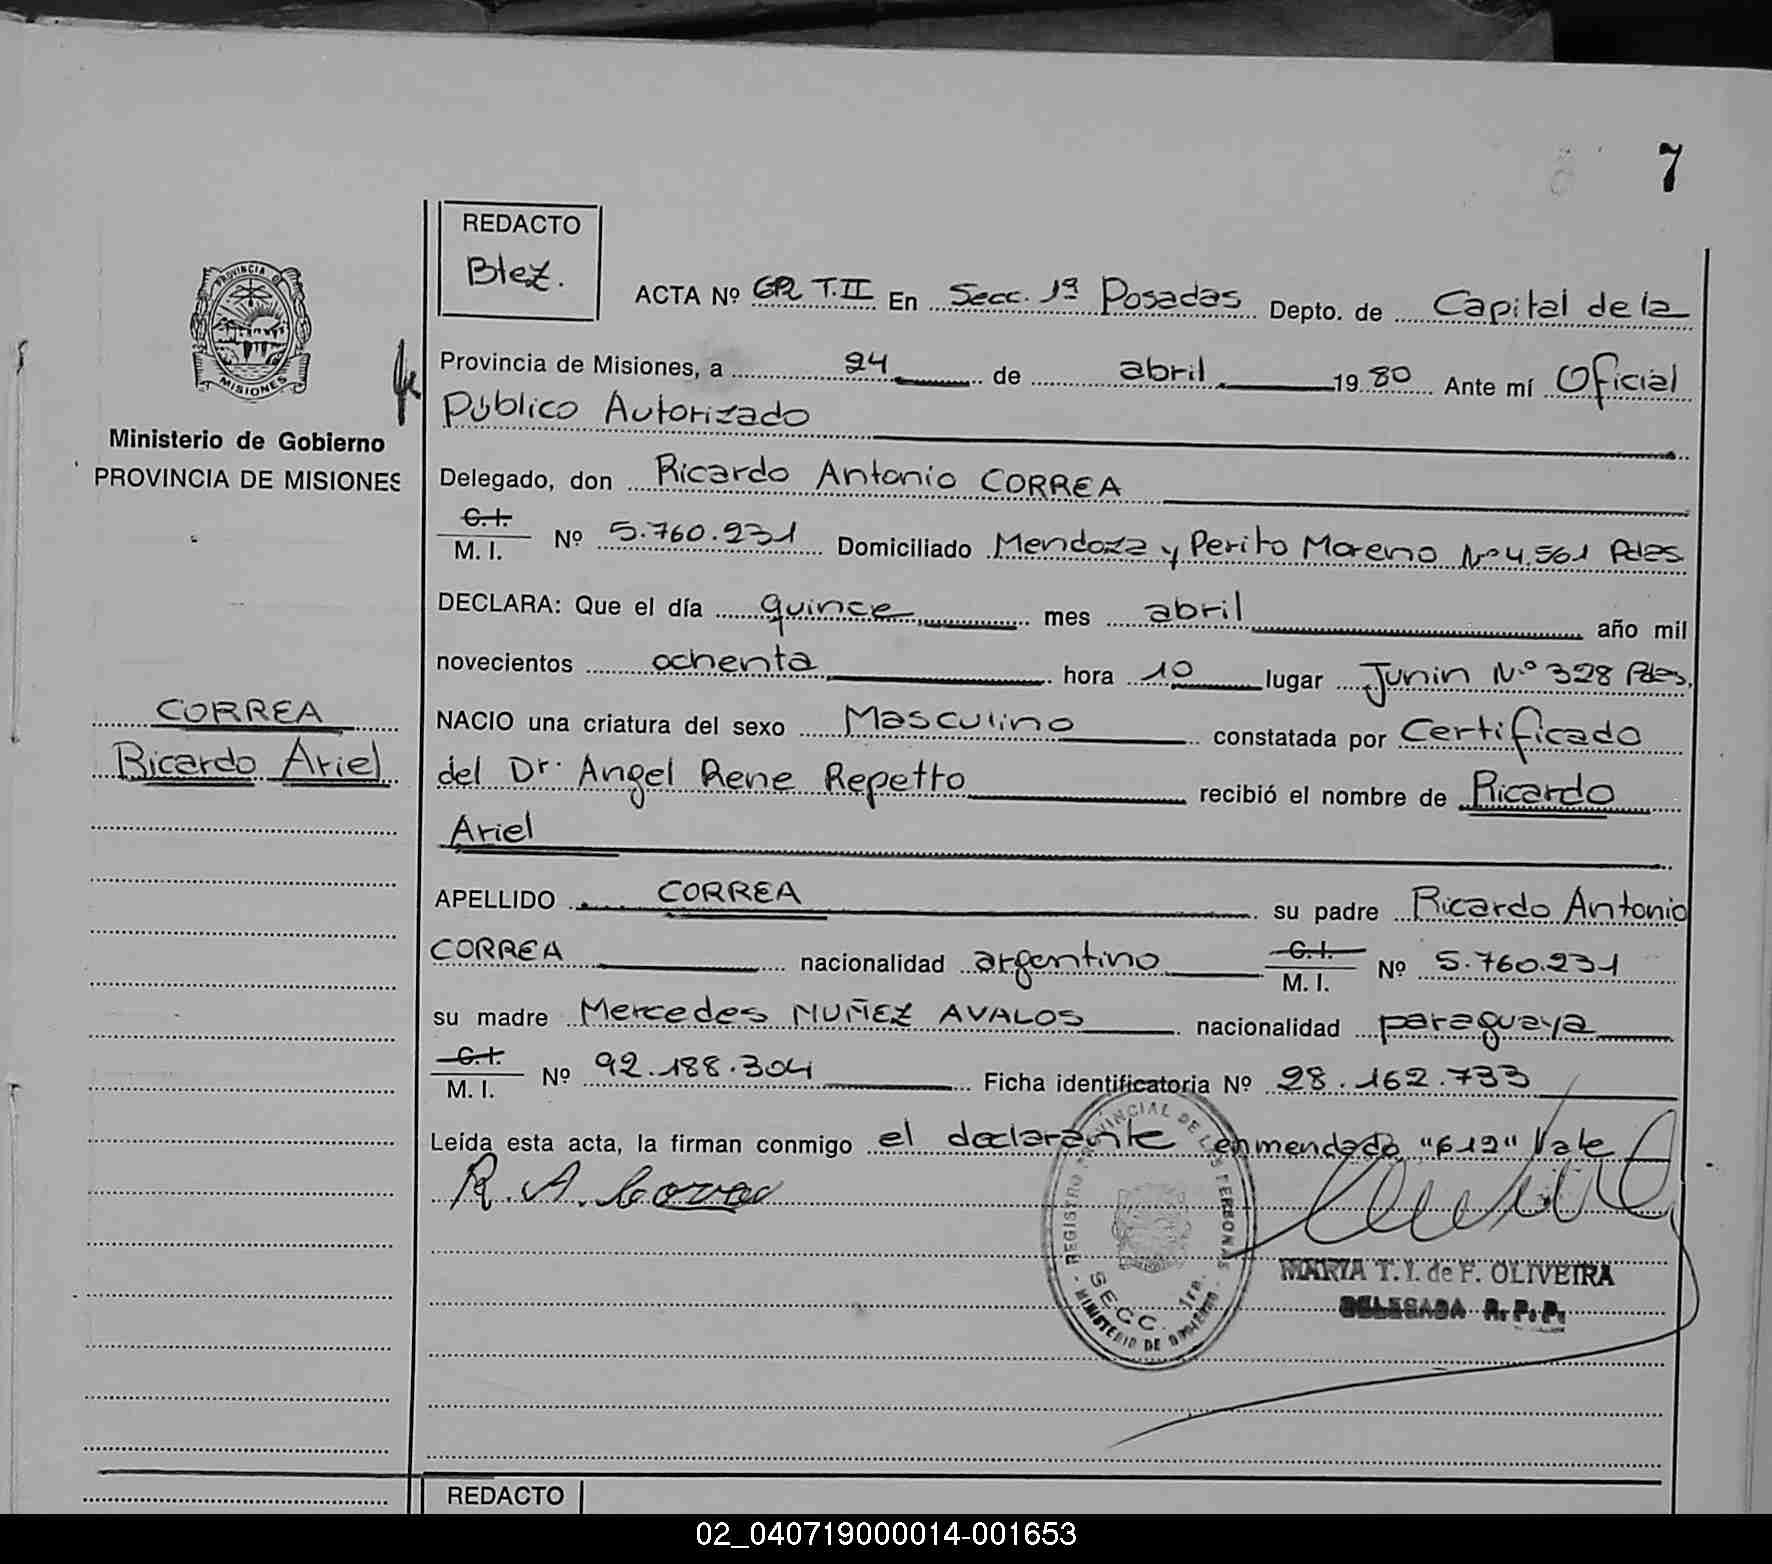 7
REDACTO
Btez.
PROVINCIA DE
MISIONES
Ministerio de Gobierno
PROVINCIA DE MISIONES
CORREA
Ricardo Ariel
ACTA Nº 612 T.II En Secc. 1ª Posadas Depto. de Capital de la
Provincia de Misiones, a 24 de abril 1980 Ante mí Oficial
Público Autorizado
Delegado, don Ricardo Antonio CORREA
C.I.
M. I. Nº 5.760.231 Domiciliado Mendoza y Perito Moreno Nº 4.561 Pdas
DECLARA: Que el día quince mes abril año mil
novecientos ochenta hora 10 lugar Junin Nº 328 Pdas.
NACIO una criatura del sexo Masculino constatada por Certificado
del Dr. Angel Rene Repetto recibió el nombre de Ricardo
Ariel
APELLIDO CORREA su padre Ricardo Antonio
CORREA nacionalidad argentino C.I. M. I. Nº 5.760.231
su madre Mercedes NUÑEZ AVALOS nacionalidad paraguaya
C.I.
M. I. Nº 92.188.304 Ficha identificatoria Nº 28.162.733
Leída esta acta, la firman conmigo el declarante enmendado "612" Vale
R. A. Correa
REGISTRO PROVINCIAL DE LAS PERSONAS
SECC. 1ra.
MINISTERIO DE GOBIERNO
MARIA T. I. de F. OLIVEIRA
DELEGADA R. P. P.
REDACTO
02_040719000014-001653